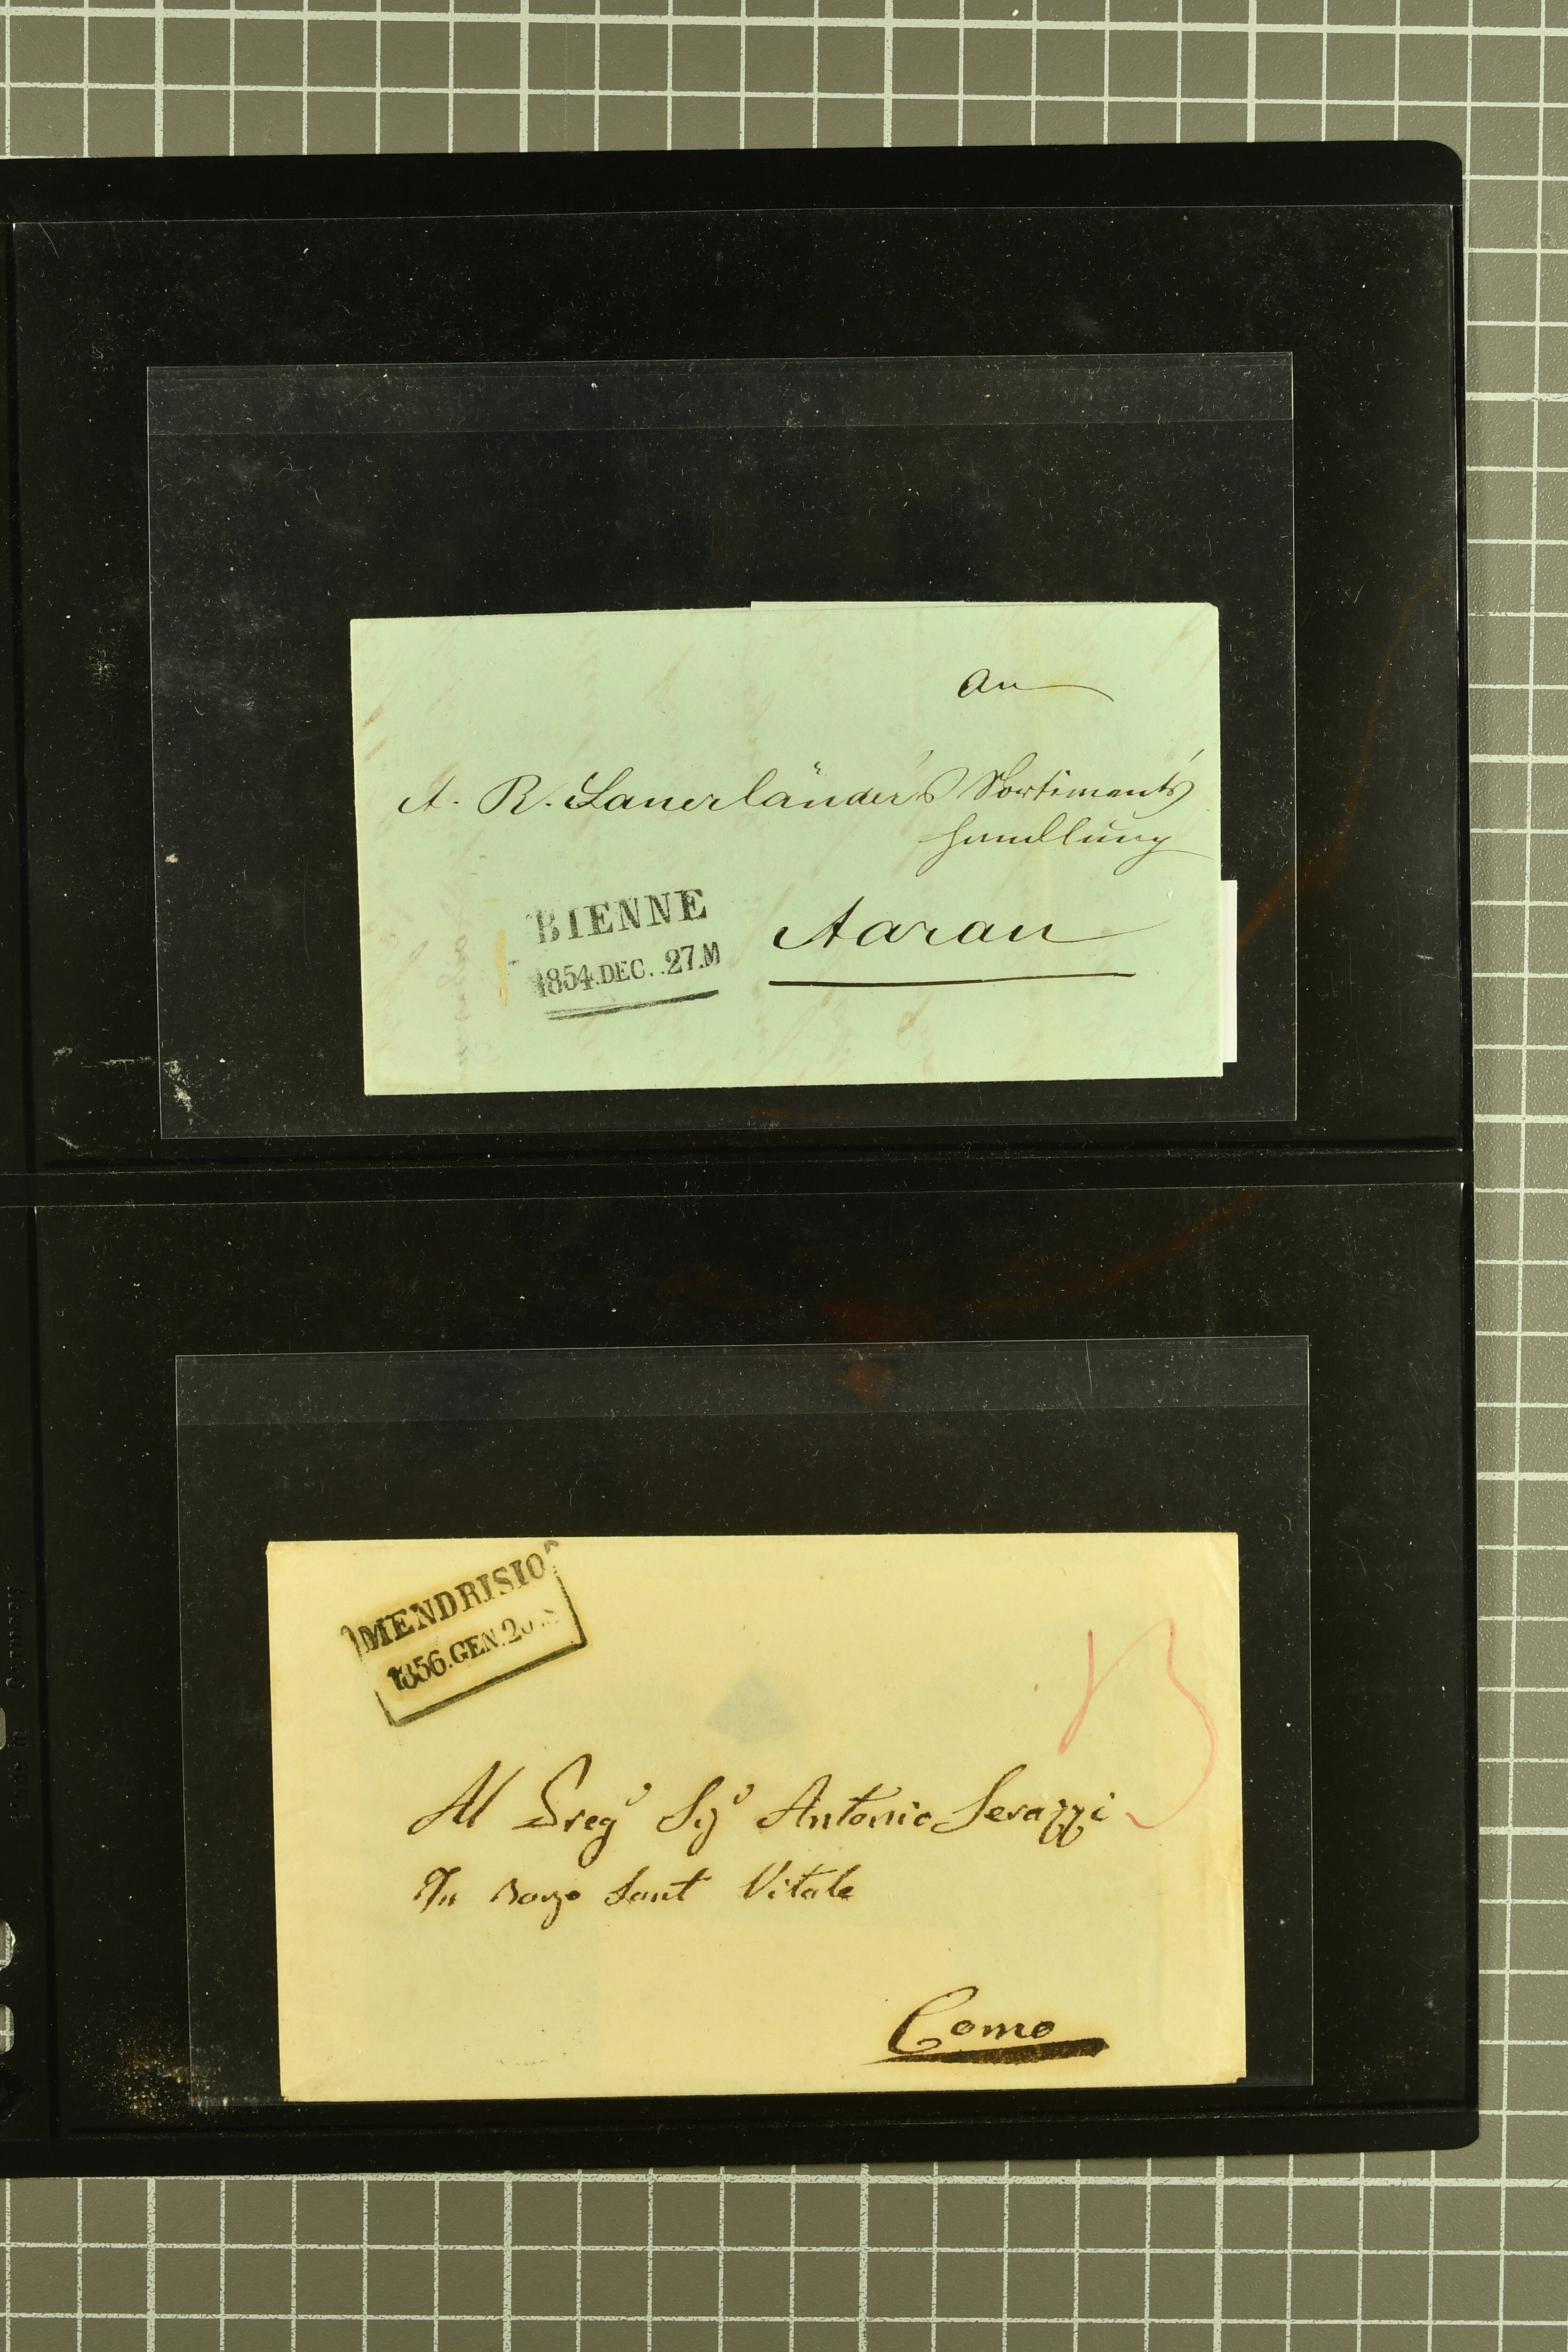 An
A. R. Sauerländer's Sortiments
handlung
BIENNE
1854.DEC..27.M
Aarau
MENDRISIO
1856.GEN.
Al Preg° Sig° Antonio Serazzi
In Borgo Sant Vitale
Como